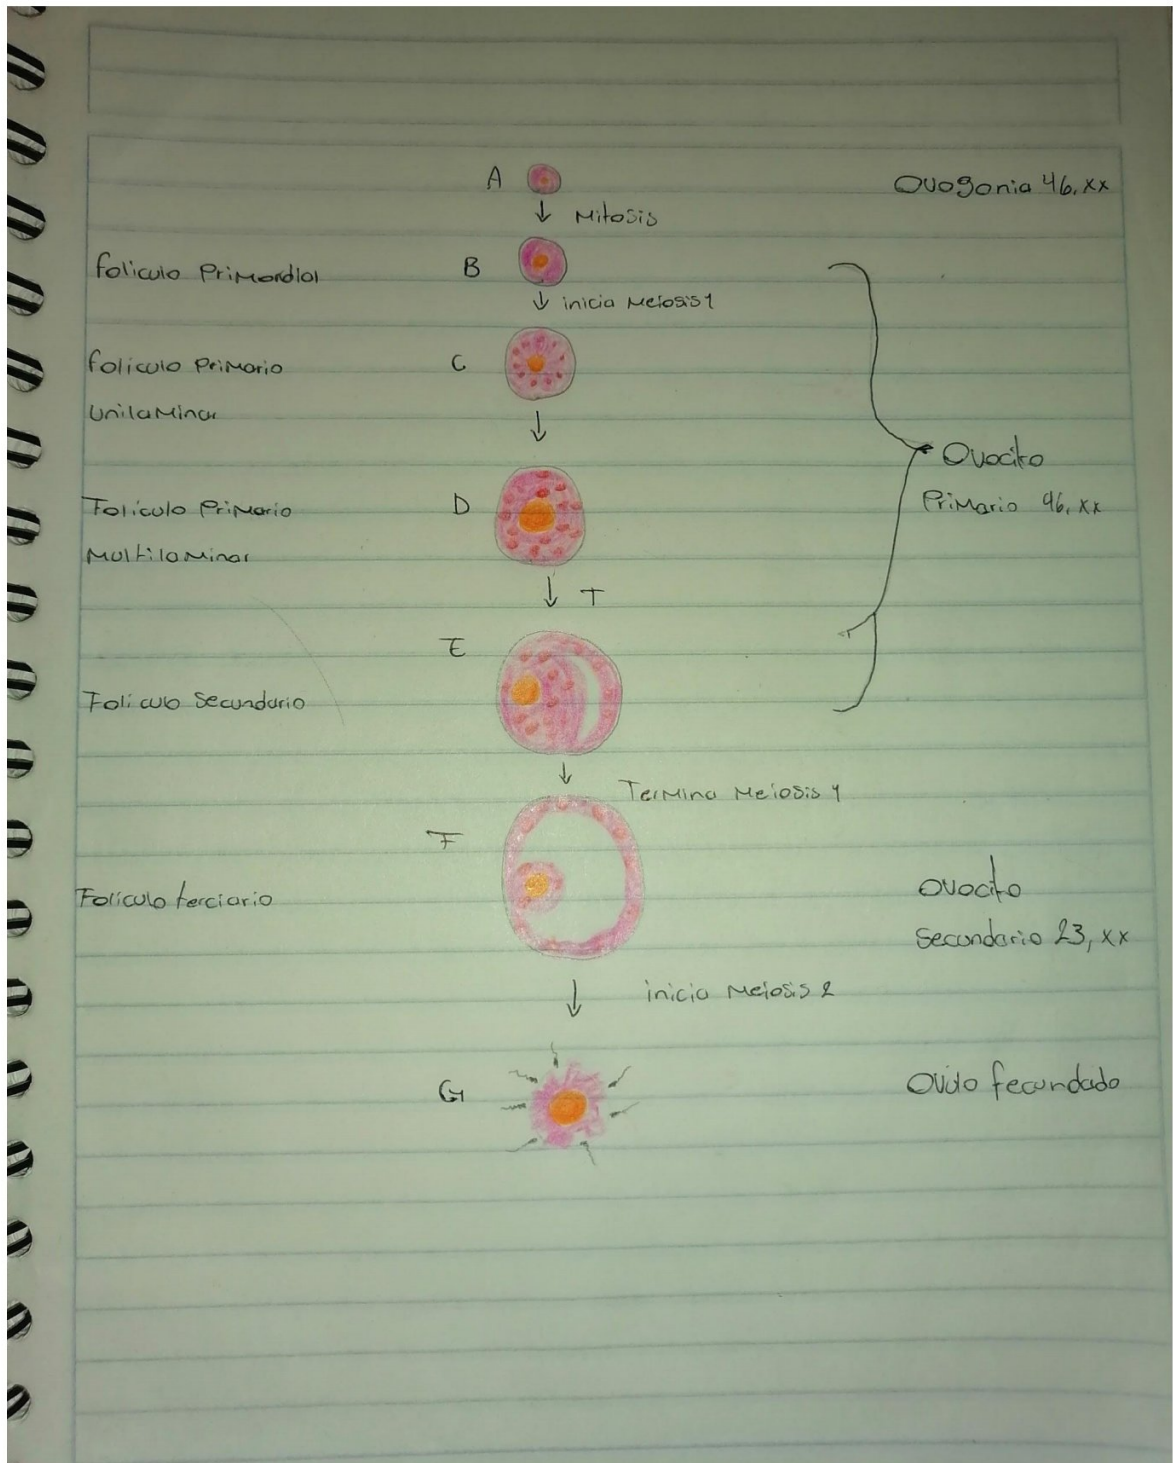 A
Ovogonia 46,xx
Mitosis
Foliculo Primordial
B
inicia Meiosis 1
Foliculo Primario
Unilaminar
C
Foliculo Primario
Multilaminar
D
Ovocito
Primario 46,xx
T
E
Foliculo Secundario
Termina Meiosis 1
F
Foliculo terciario
Ovocito
Secundario 23,xx
inicia Meiosis 2
G
Ovulo fecundado